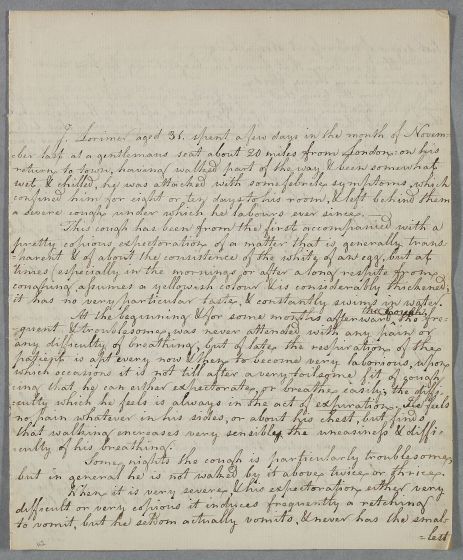 J. Lorimer aged 31. spent a few days in the month of Novem-
ber last at a gentlemans seat about 20 miles from London: on his
return to town, having walked part of the way & been somewhat
wet & chilled, he was attacked with some febrile symptoms, which
confined him for eight or ten days to his room, & left behind them
a severe cough under which he labours ever since.
This cough has been from the first accompanied with a
pretty copious expectoration of a matter that is generally trans
parent & of about the consistence of the white of an egg, but at
times (especially in the mornings or after a long respite from
coughing assumes a yellowish colour & is considerably thickened;
it has no very particular taste, & constantly swims in water.
At the beginning & for some months afterward the cough, tho' fre-
quent & troublesome, was never attended with any pain or
any difficulty of breathing, but of late the respiration of the
patient is apt every now & then to become very laborious, upon
which occasions it is not till after a very toilsome fit of cough
ing that he can either expectorate or breathe easily; the diffi-
culty which he feels is always in the act of expiration. He feels
no pain whatever in his sides, or about his chest, but finds
that walking encreases very sensibly the uneasiness & diffi-
culty of his breathing.
Some nights the cough is particularly troublesome,
but in general he is not waked by it above twice or thrice.
When it is very severe, & his expectoration either very
difficult or very copious it induces frequently a retching
to vomit, but he seldom actually vomits, & never has the smal-
=lest